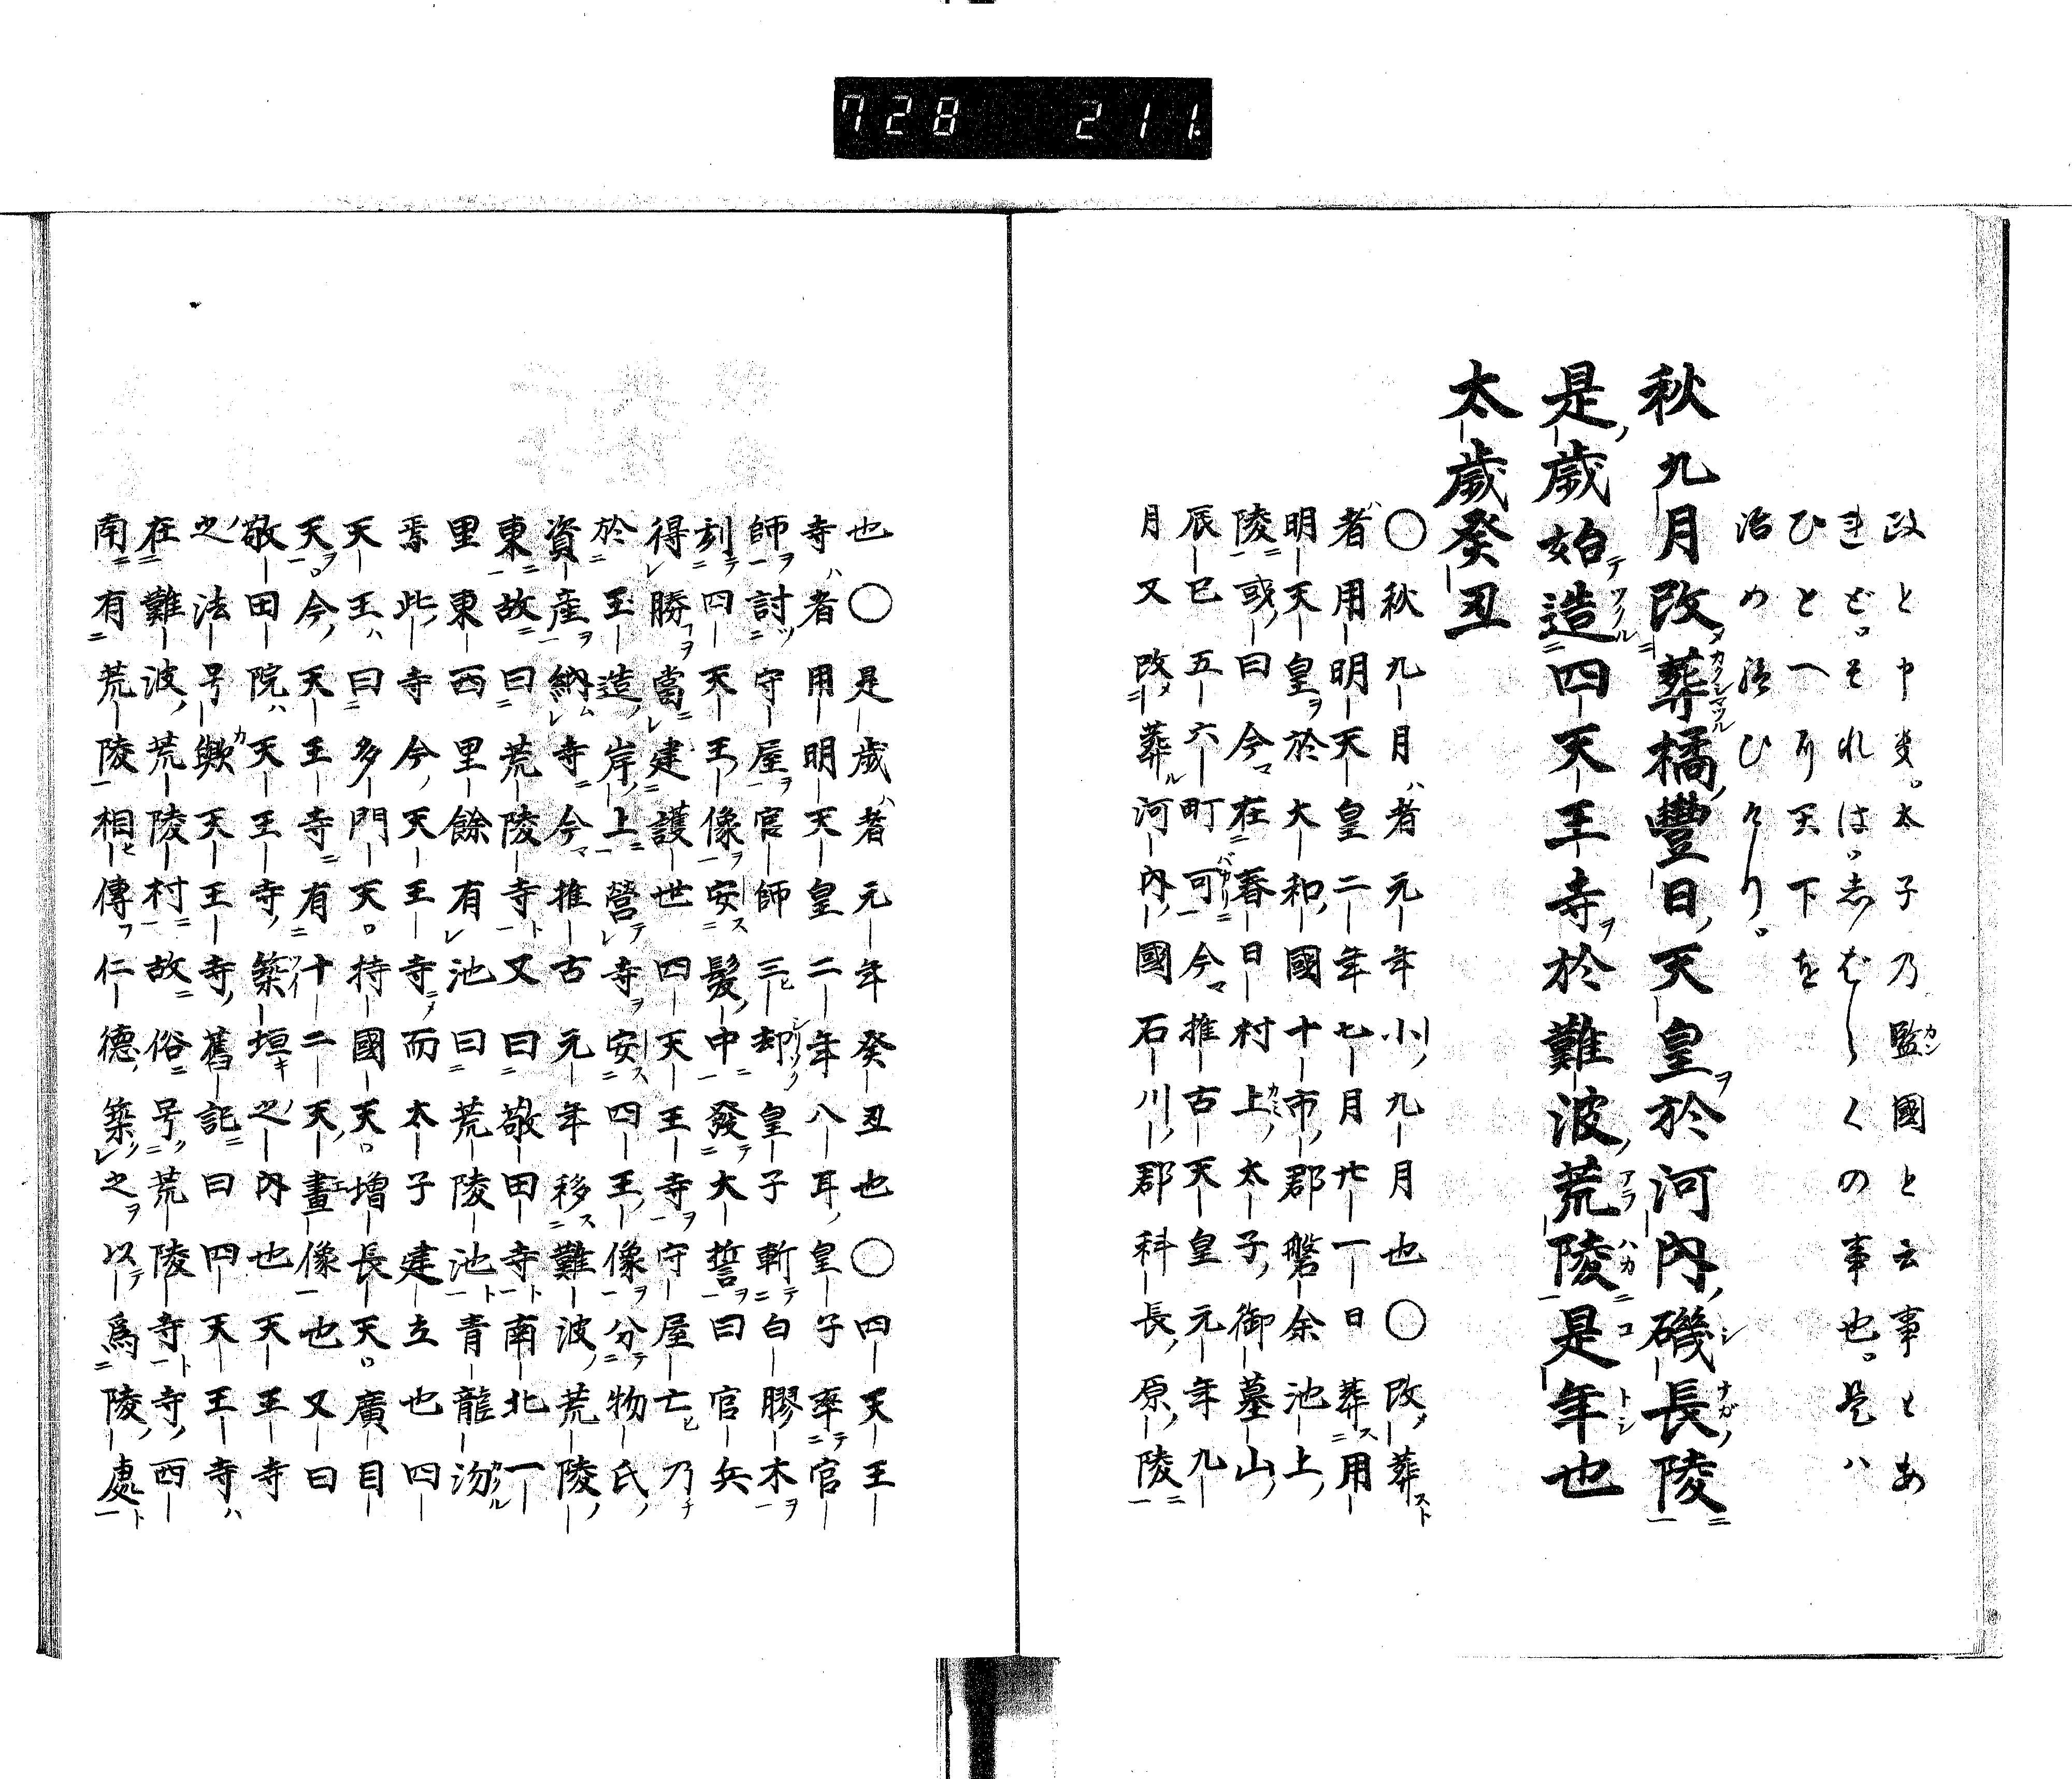 728 211
政と申文。太子乃監國と云事とあ
れど。それは。志ばらくの事也。是ハ
ひとへに天下を
治め給ひけり。
秋九月改葬橘豐日天皇於河內磯長陵
是歲始造四天王寺於難波荒陵是年也
太歲癸丑
〇秋九月者元年小九月也〇改葬
者用明天皇二年七月廿一日葬用
明天皇於大和國十市郡磐余池上
陵或曰今在春日村上太子御墓山
辰巳五六町可今推古天皇元年九
月又改葬河內國石川郡科長原陵
也〇是歲者元年癸丑也〇四天王
寺者用明天皇二年八耳皇子率官
師討守屋官師三却皇子斬白膠木
刻四天王像安髮中發大誓曰官兵
得勝當建護世四天王寺守屋亡乃
於玉造岸上營寺安四王像分物氏
資產納寺今推古元年移難波荒陵
東故曰荒陵寺又曰敬田寺南北一
里東西里餘有池曰荒陵池青龍沕
焉此寺今天王寺而太子建立也四
天王曰多門天持國天增長天廣目
天今天王寺有十二天畫像也又曰
敬田院天王寺築垣之內也天王寺
之法号歟天王寺舊記曰四天王寺
在難波荒陵村故俗号荒陵寺寺西
南有荒陵相傳仁德築之以爲陵處